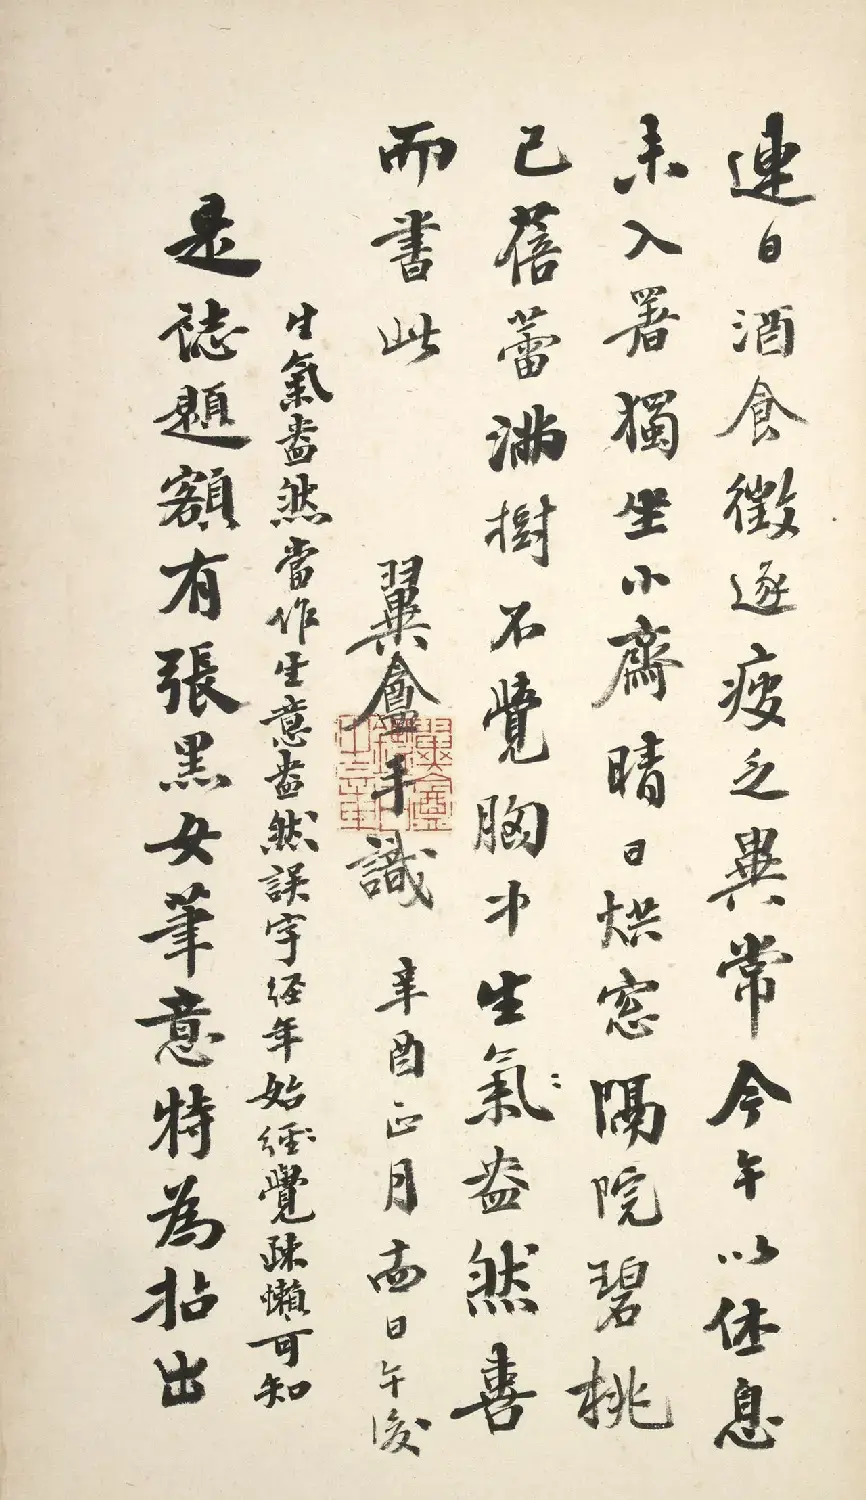 連日酒食徵逐疲乏異常今午以休息
未入署獨坐小齋晴日烘窓隔院碧桃
已蓓蕾滿樹不覺胸中生氣盎然喜
而書此 翼盦手識 辛酉正月日午後
生氣盎然當作生意盎然誤字経年始經覺疎懶可知
是誌題額有張黑女筆意特為拈出